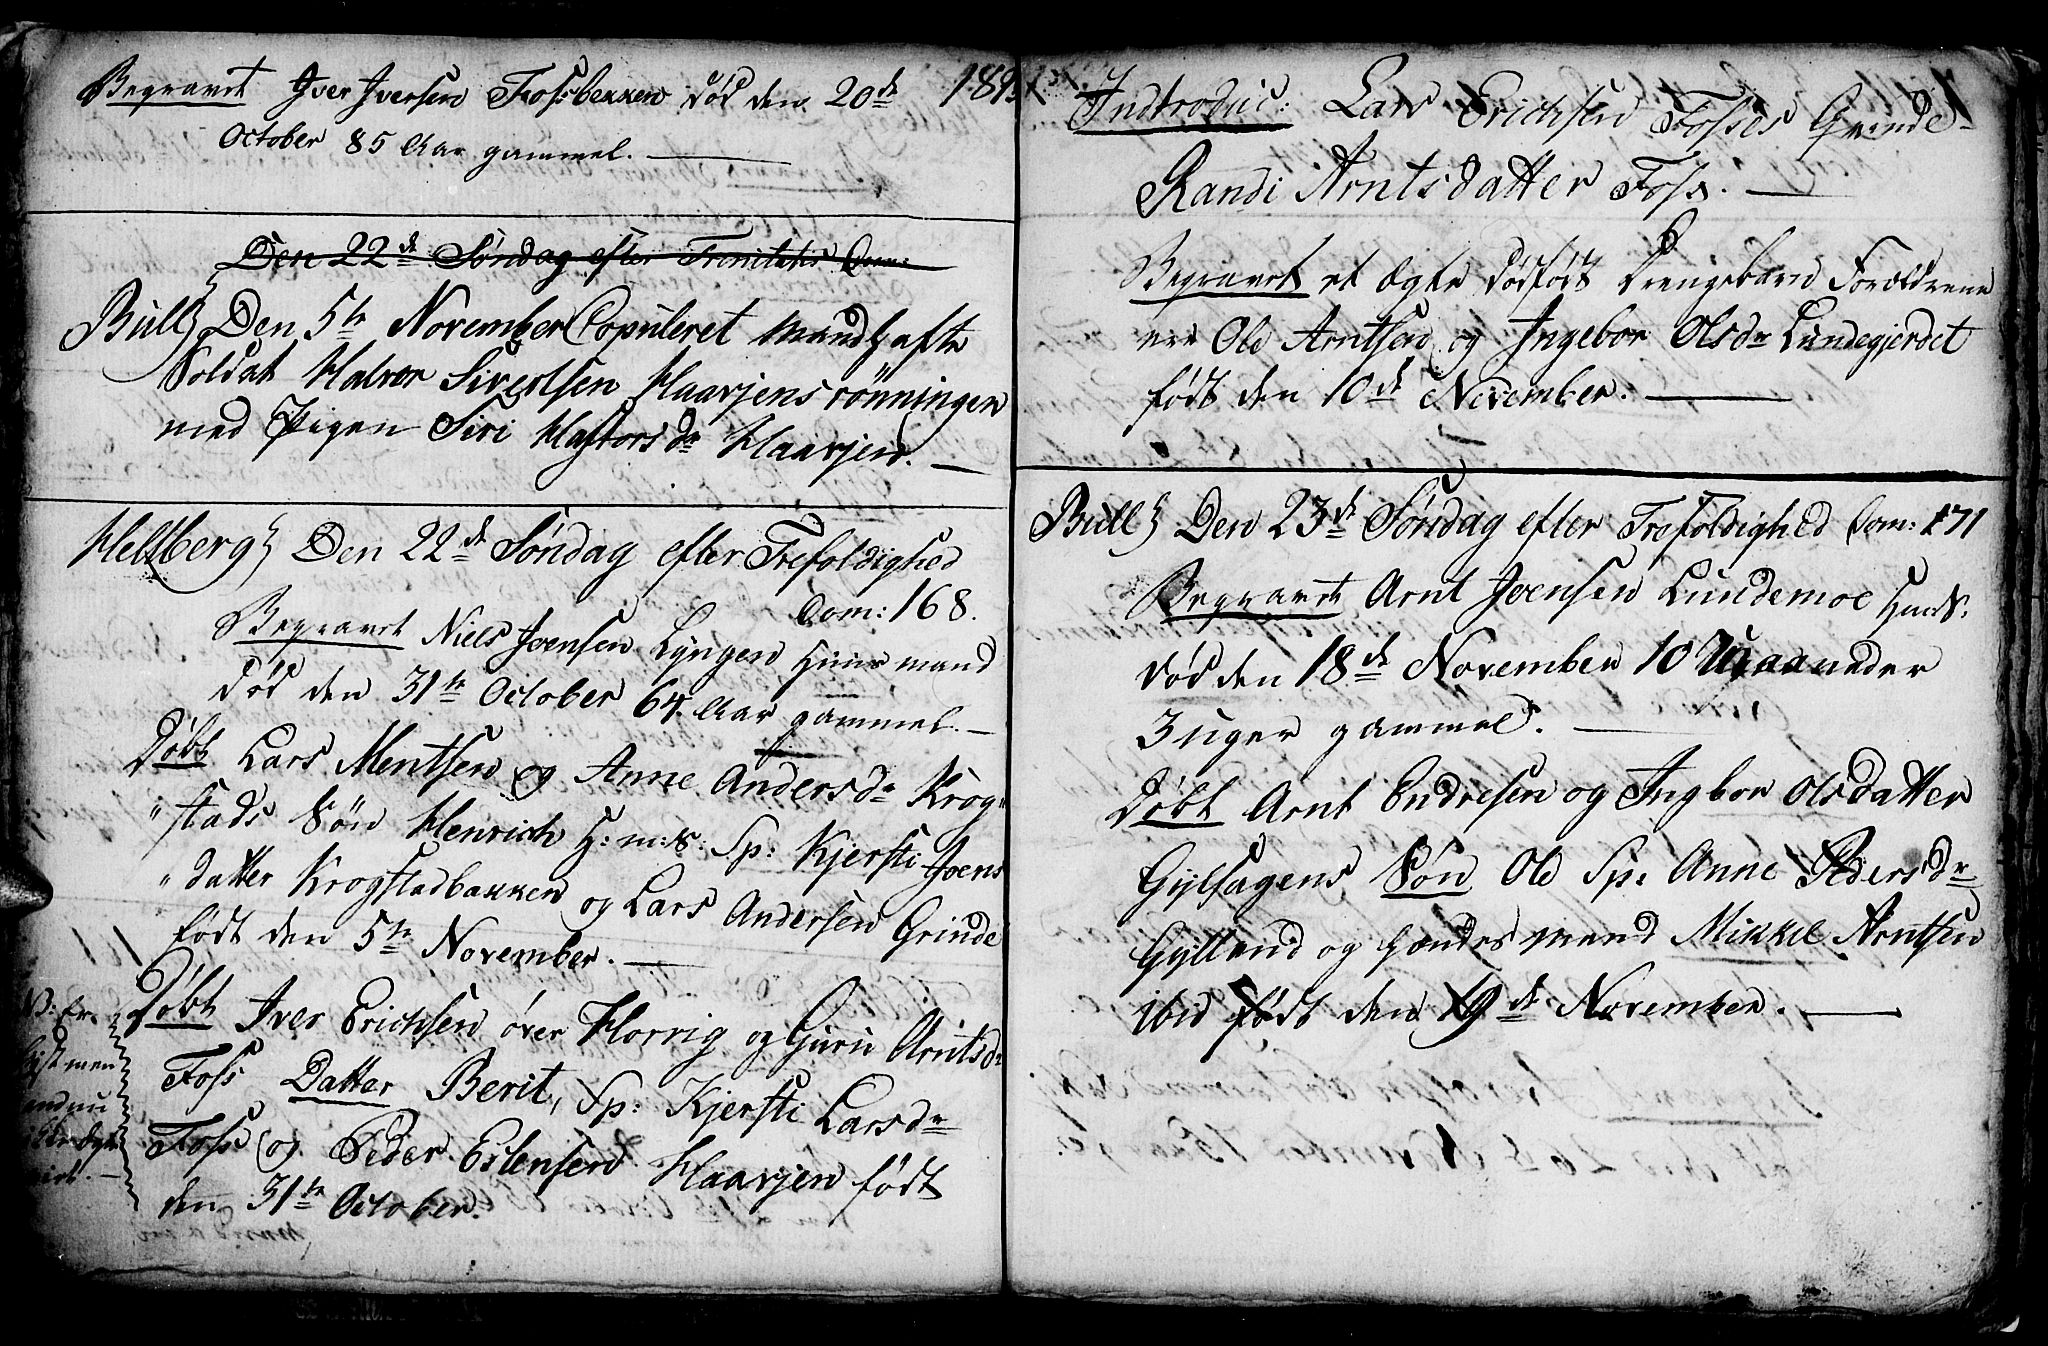 Begravet Iver Iversen Fossbekken død den 20de
October 85 Aar gammel.
Den 22de Søndag efter Trinitatis Com:
Bull} Den 5te November Copuleret Mandhafte
Soldat Halvor Sivertsen Haarjens rønningen
med Pigen Siri Hastorsdr Haarjen.
Hellberg} Den 22de Søndag efter Trefoldighed
Com: 168.
Begravet Niels Joensen Lyngen Huusmand
død den 31te October 64 Aar gammel.
Døbt Lars Mentsen og Anne Andersdr Krog-
"stads Søn Henrich H: m: S: Sp: Kjersti Joens
"datter Krogstadbakken og Lars Andersen Grinde
født den 5te November.
Døbt Iver Erichsen øver Horrig og Guru Arntsdr
Foss Datter Berit, Sp: Kjersti Larsdr
Foss og Peder Erlensen Haarjen født
den 31te October.
Indtroduc: Lars Erichsen Fosses Qvinde
Randi Arntsdatter Foss.
Begravet et ægte dødfødt Drengebarn Forældrene
ere Ole Arntsen og Ingebor Olsdr Lundegjerdet
født den 10de November.
Bull} Den 23de Søndag efter Trefoldighed Com: 171
Begravet Arnt Joensen Lundemoe Huuds:
død den 18de November 10 Maaneder
3 uger gammel.
Døbt Arnt Endresen og Ingbor Olsdatter
Gylhagens Søn Ole Sp: Anne Pedersdr
Gylland og Hændes mand Mikkel Arntsen
ibid født den 9de November.